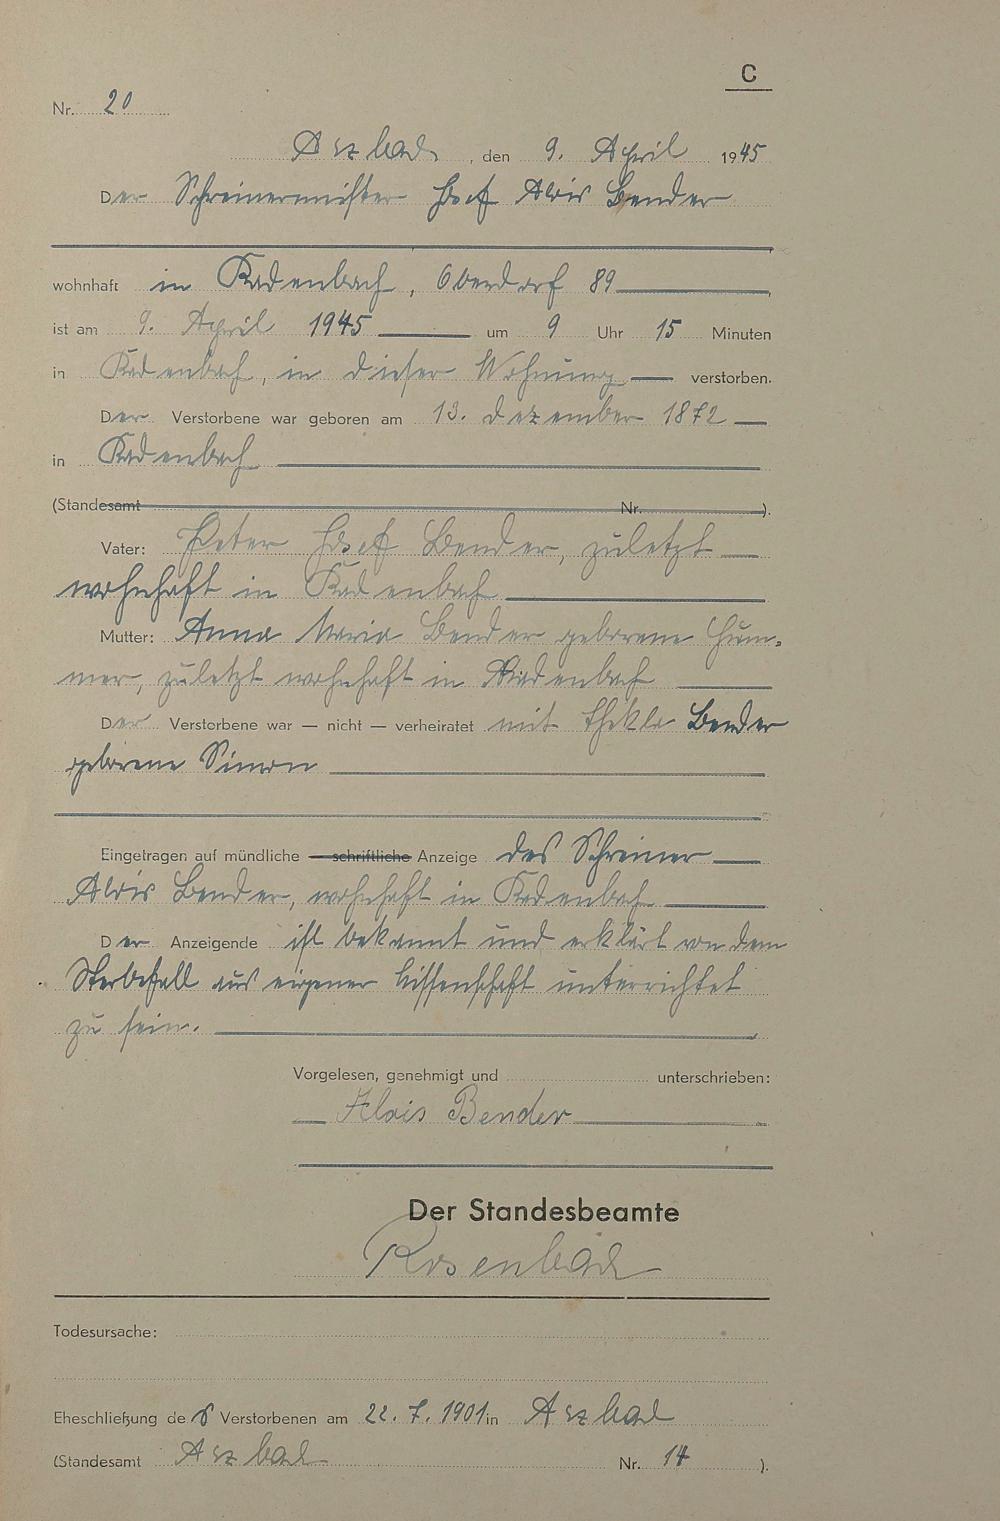 C
Nr. 20
Arzbach, den 9. April 1945
Der Schreinermeister Josef Alois Bender
wohnhaft in Kadenbach, Oberdorf 89
ist am 9. April 1945 um 9 Uhr 15 Minuten
in Kadenbach, in dieser Wohnung verstorben.
Der Verstorbene war geboren am 13. Dezember 1872
in Kadenbach
(Standesamt Nr. ).
Vater: Peter Josef Bender, zuletzt
wohnhaft in Kadenbach
Mutter: Anna Maria Bender geborene Hüm-
mer, zuletzt wohnhaft in Kadenbach
Der Verstorbene war — nicht — verheiratet mit Thekla Bender
geborene Simon
Eingetragen auf mündliche — schriftliche Anzeige des Schreiner
Alois Bender, wohnhaft in Kadenbach
Der Anzeigende ist bekannt und erklärt von dem
Sterbefall aus eigener Wissenschaft unterrichtet
zu sein.
Vorgelesen, genehmigt und unterschrieben:
Alois Bender
Der Standesbeamte
Rosenbach
Todesursache:
Eheschließung des Verstorbenen am 22. 7. 1901 in Arzbach
(Standesamt Arzbach Nr. 14 ).